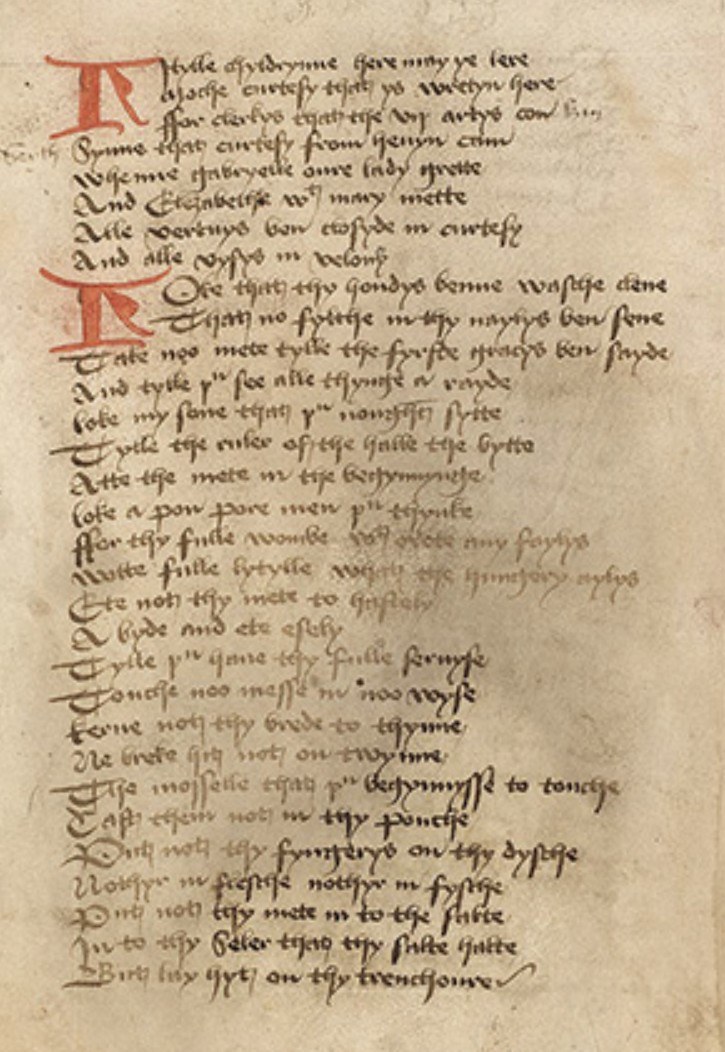 Lytylle chyldrynne here may ye lere
Moche curtesy that ys wretyn here
ffor clerkys that the vij artys con
Synne that curtesy from hevyn cam
Whenne gabryelle oure lady grette
And Elizabethe wt mary mette
Alle vertuys ben closyde in curtesy
And alle vysys in velony
Loke that thy hondys benne wasche clene
That no fylthe in thy naylys ben sene
Take noo mete tylle the fyrste gracys ben sayde
And tylle þu see alle thynge a rayde
loke my sone that þu nought sytte
Tylle the ruler of the halle the bytte
Atte the mete in the begynnynge
loke a pon pore men þu thynke
ffor thy fulle wombe wt owte any faylys
Wotte fulle lytylle what the hungery aylys
Ete not thy mete to hastely
A byde and ete esely
Tylle þu have thy fulle servyse
Touche noo messe in noo wyse
kerve not thy brede to thynne
Ne breke hit not on twynne
The mosselle that þu begynnysse to touche
Cast them not in thy pouche
Put not thy fyngerys on thy dysche
Nothyr in flesche nothyr in fysche
Put not thy mete in to the salte
In to thy Seler that thy salte halte
But lay hyt on thy trenchoure